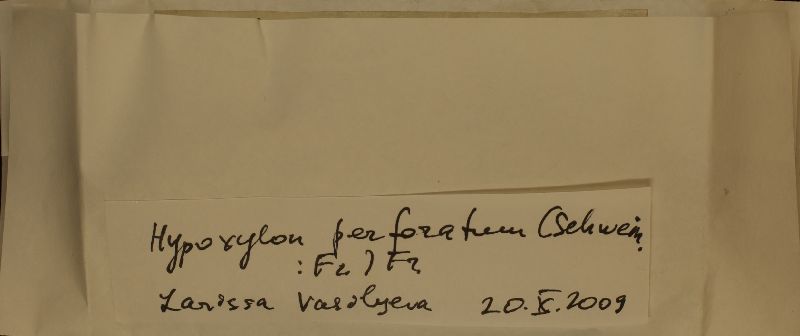 Hypoxylon perforatum (Schwein.
: Fr.) Fr.
Larissa Vasilyeva 20.X.2009